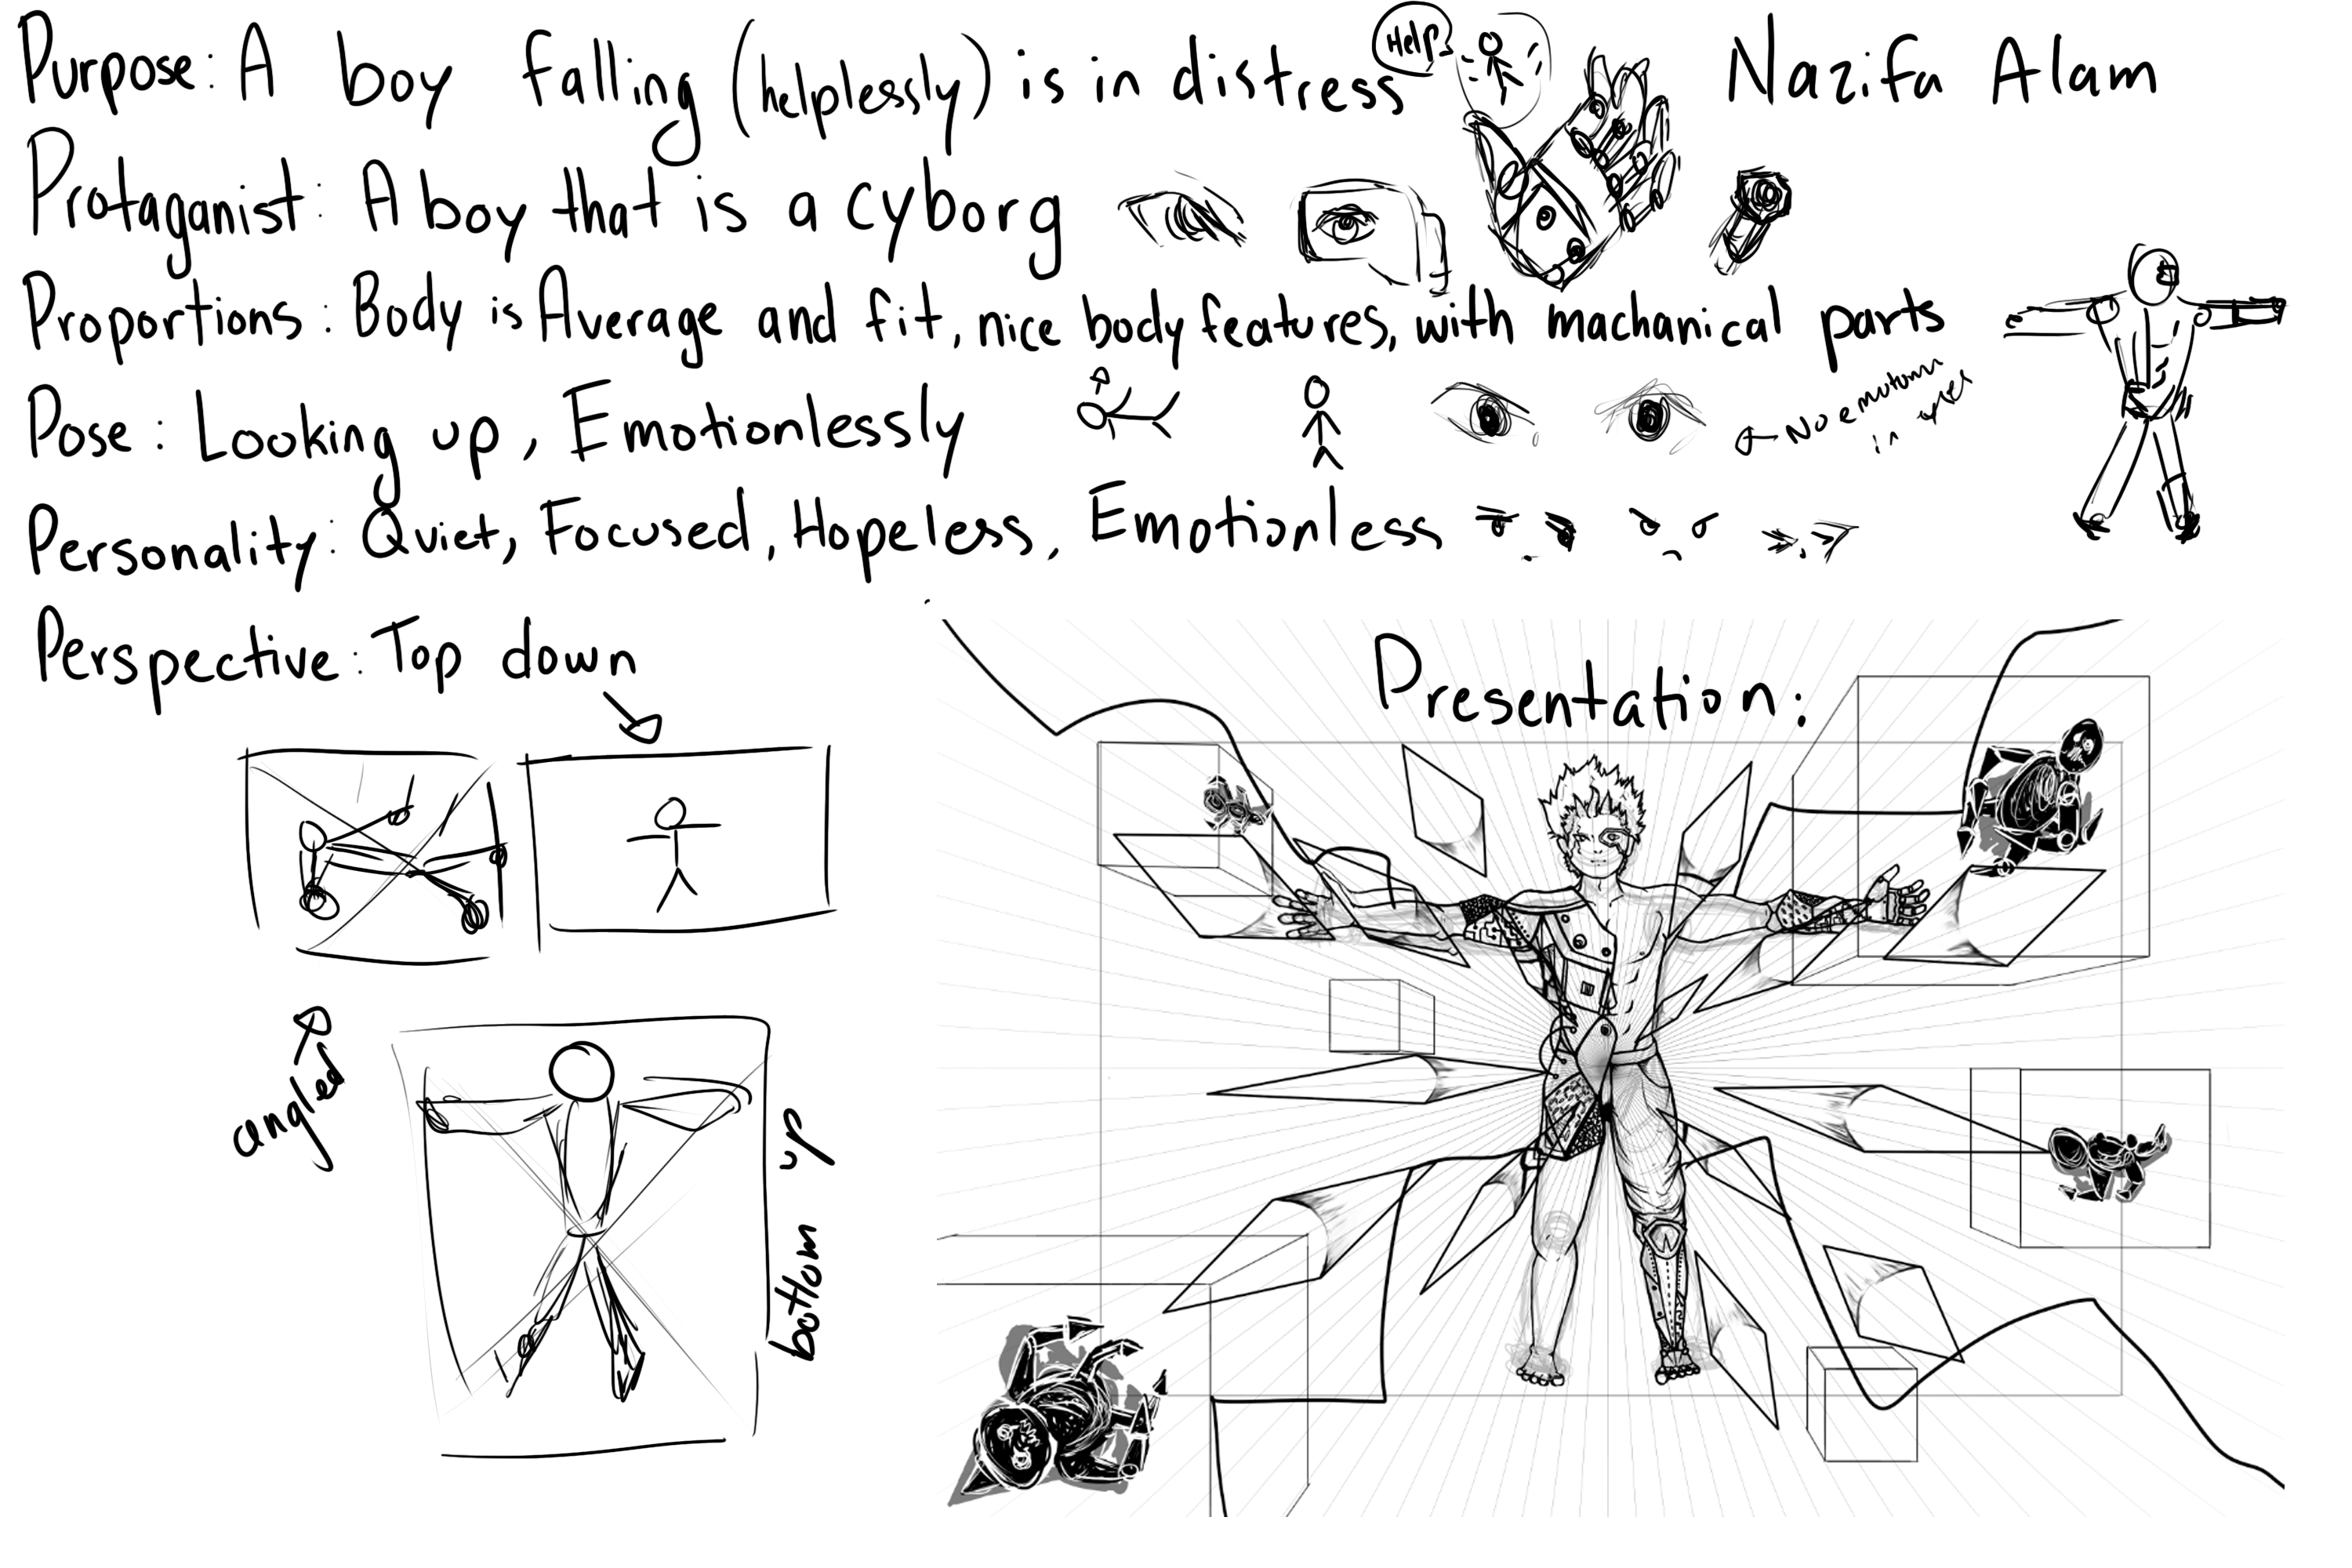 Purpose: A boy falling (helplessly) is in distress
Help!
Nazifa Alam
Protaganist: A boy that is a cyborg
Proportions: Body is Average and fit, nice body features, with machanical parts
Pose: Looking up, Emotionlessly
No emotion
in eyes
Personality: Quiet, Focused, Hopeless, Emotionless
Perspective: Top down
Presentation:
angled
bottom up